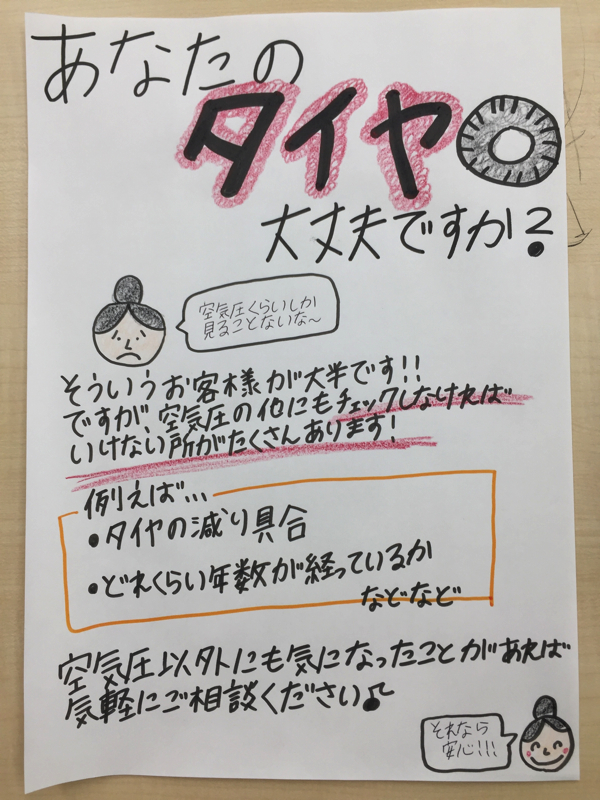 あなたの
タイヤ
大丈夫ですか?
空気圧くらいしか
見ることないな〜
そういうお客様が大半です!!
ですが、空気圧の他にもチェックしなければ
いけない所がたくさんあります!
例えば...
•タイヤの減り具合
•どれくらい年数が経っているか
などなど
空気圧以外にも気になったことがあれば
気軽にご相談ください♪
それなら
安心!!!